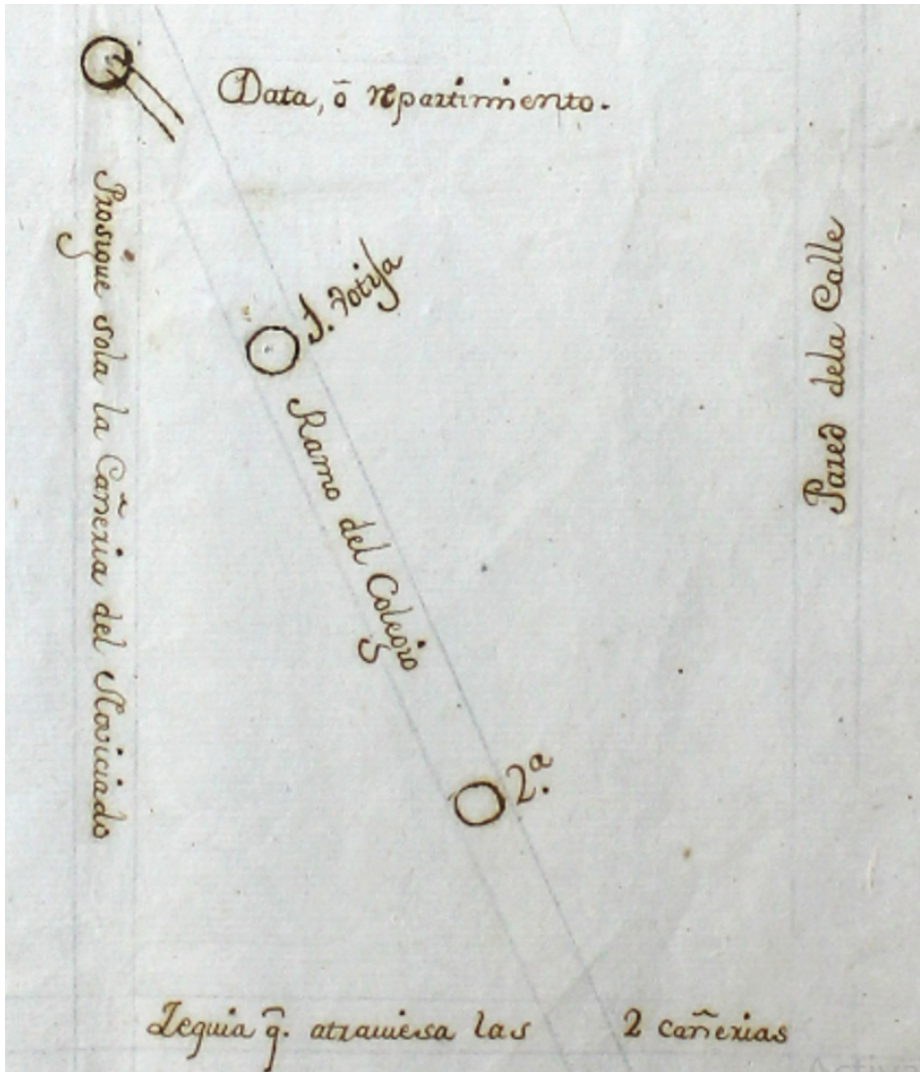 Data, ō repartimiento.
Prosigue sola la Cañeria del Noviciado
1. votija
Ramo del Colegio
Pared dela Calle
2.ª
Zequia q̃. atrauiesa las 2 cañerias